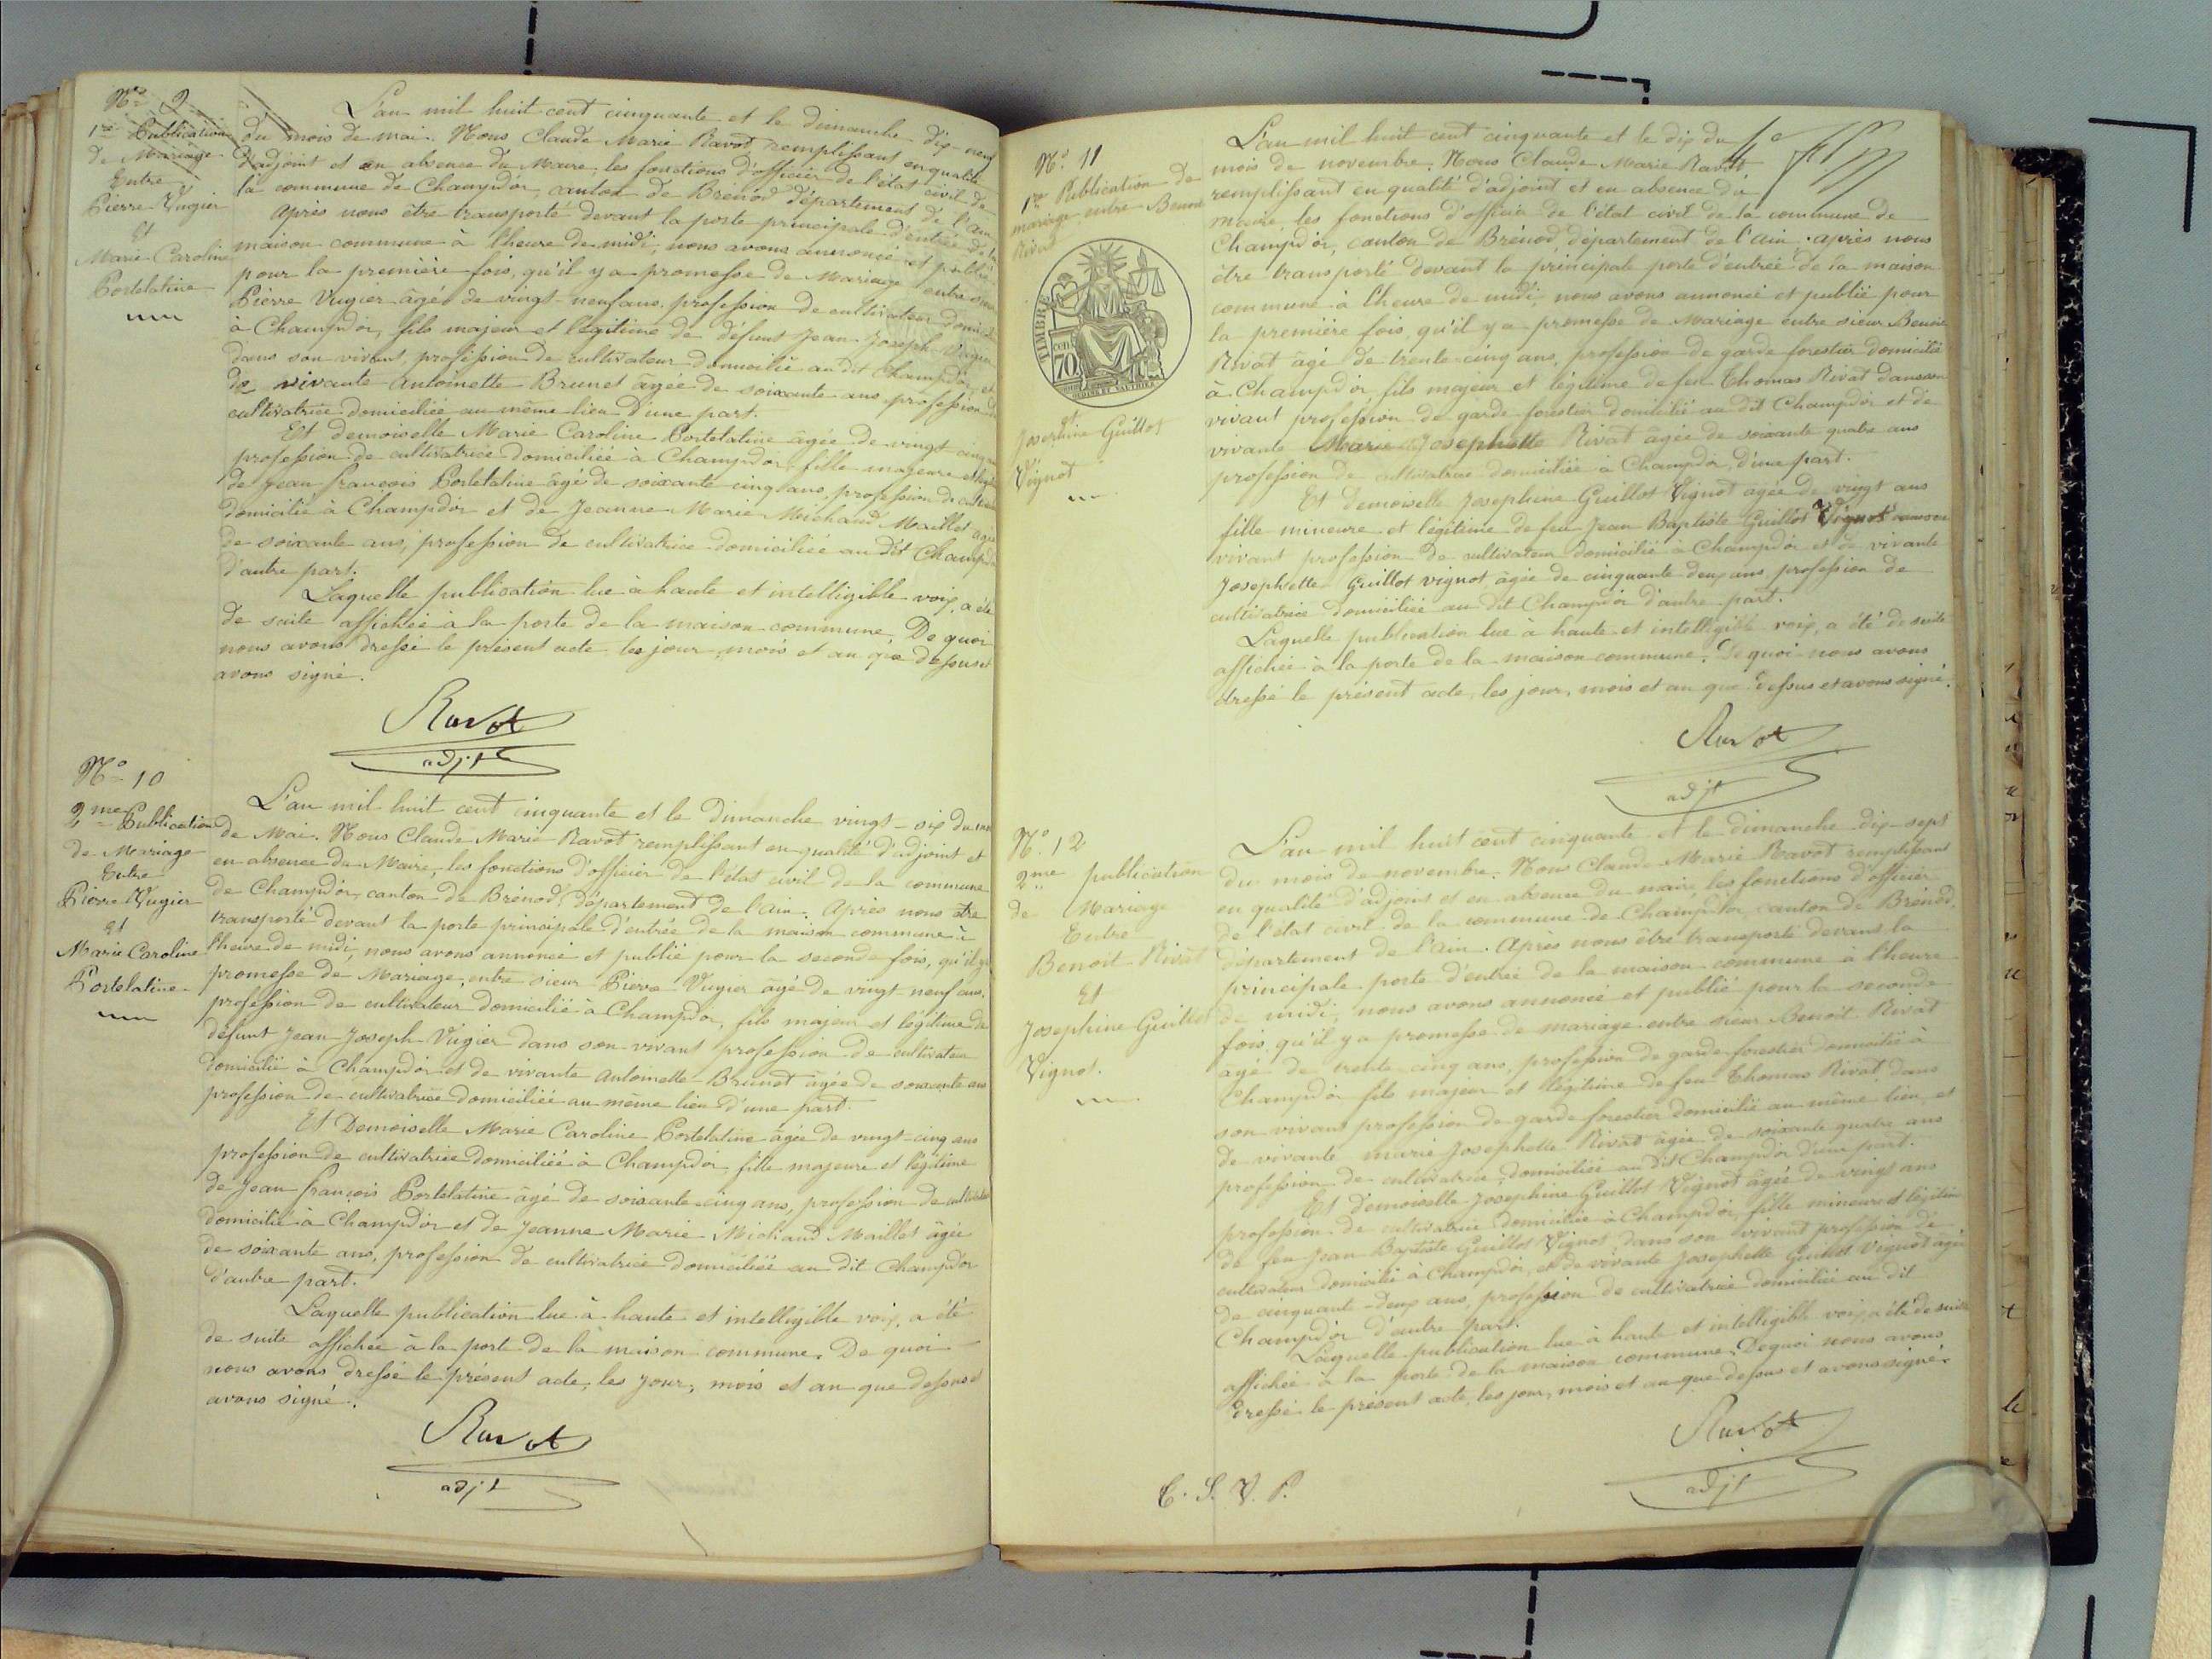 N° 9
1re Publication
de Mariage
Entre
Pierre Vugier
Et
Marie Caroline
Portelatine
L'an mil huit cent cinquante et le dimanche dix-neuf
du mois de mai. Nous Claude Marie Ravot remplissant en qualité
d'adjoint et en absence du Maire, les fonctions d'officier de l'état civil de
la commune de Champdor, canton de Brénod département de l'ain
Après nous être transporté devant la porte principale d'entrée de la
maison commune à l'heure de midi, nous avons annoncé et publié
pour la première fois, qu'il y a promesse de Mariage entre sieur
Pierre Vugier âgé de vingt-neuf ans, profession de cultivateur
à Champdor, fils majeur et légitime de défunt Jean-Joseph Vugier
dans son vivant, profession de cultivateur domicilié au dit Champdor, et
de vivante antoinette Brunet âgée de soixante ans profession de
cultivatrice domiciliée au même lieu d'une part.
Et demoiselle Marie Caroline Portelatine âgée de vingt cinq
profession de cultivatrice domiciliée à Champdor, fille majeure
de Jean françois Portelatine âgé de soixante cinq ans, profession de
domicilié à Champdor et de Jeanne Marie Michaud Maillet âgée
de soixante ans, profession de cultivatrice domiciliée au dit Champdor
d'autre part.
Laquelle publication lue à haute et intelligible voix, a été
de suite affichée à la porte de la maison commune. De quoi
nous avons dressé le présent acte les jour, mois et an que dessus et
avons signé.
Ravot
adjt
N° 10
2me Publication
de Mariage
Entre
Pierre Vugier
Et
Marie Caroline
Portelatine.
L'an mil huit cent cinquante et le dimanche vingt-six du
de Mai. Nous Claude Marie Ravot remplissant en qualité d'adjoint et
en absence du Maire, les fonctions d'officier de l'état civil de la commune
de Champdor, canton de Brénod, département de l'ain. Après nous être
transporté devant la porte principale d'entrée de la maison commune à
l'heure de midi, nous avons annoncé et publié pour la seconde fois, qu'il y a
promesse de Mariage, entre sieur Pierre Vugier âgé de vingt-neuf ans,
profession de cultivateur domicilié à Champdor, fils majeur et légitime de
défunt Jean-Joseph Vugier dans son vivant profession de cultivateur
domicilié à Champdor et de vivante antoinette Brunet âgée de soixante ans
profession de cultivatrice domiciliée au même lieu d'une part.
Et Demoiselle Marie Caroline Portelatine âgée de vingt-cinq ans
profession de cultivatrice domiciliée à Champdor fille majeure et légitime
de Jean françois Portelatine âgé de soixante cinq ans, profession de cultivateur
domicilié à Champdor et de Jeanne Marie Michaud Maillet âgée
de soixante ans, profession de cultivatrice domiciliée au dit Champdor
d'autre part.
Laquelle publication lue à haute et intelligible voix, a été
de suite affichée à la porte de la maison commune. De quoi
nous avons dressé le présent acte, les jour, mois et an que dessus et
avons signé.
Ravot
adjt
N° 11
1re Publication de
mariage entre Benoit
Rivat
TIMBRE
70
et
Josephine Guillot
Vignot
L'an mil huit cent cinquante et le dix du
mois de novembre. Nous Claude Marie Ravot,
remplissant en qualité d'adjoint et en absence du
maire, les fonctions d'officier de l'état civil de la commune de
Champdor, canton de Brénod, département de l'ain. après nous
être transporté devant la principale porte d'entrée de la maison
commune à l'heure de midi, nous avons annoncé et publié pour
la première fois, qu'il y a promesse de Mariage entre sieur Benoit
Rivat âgé de trente-cinq ans, profession de garde forestier domicilié
à Champdor, fils majeur et légitime de feu Thomas Rivat dans son
vivant profession de garde forestier domicilié au dit Champdor et de
vivante Marie Josephette Rivat âgée de soixante quatre ans
profession de cultivatrice domiciliée à Champdor, d'une part.
Et demoiselle Josephine Guillot Vignot âgée de vingt ans
fille mineure et légitime de feu Jean Baptiste Guillot Vignot dans son
vivant profession de cultivateur domicilié à Champdor et de vivante
Josephette Guillot vignot âgée de cinquante deux ans profession de
cultivatrice domiciliée au dit Champdor d'autre part.
Laquelle publication lue à haute et intelligible voix, a été de suite
affichée à la porte de la maison commune. De quoi nous avons
dressé le présent acte, les jour, mois et an que dessus et avons signé.
Ravot
adjt
N° 12
2me publication
de Mariage
Entre
Benoit Rivat
Et
Josephine Guillot
Vignot.
L'an mil huit cent cinquante et le dimanche dix-sept
du mois de novembre. Nous Claude Marie Ravot remplissant
en qualité d'adjoint et en absence du maire, les fonctions d'officier
de l'état civil de la commune de Champdor, canton de Brénod,
département de l'ain. Après nous être transporté devant la
principale porte d'entrée de la maison commune à l'heure
de midi, nous avons annoncé et publié pour la seconde
fois, qu'il y a promesse de mariage entre sieur Benoit Rivat
âgé de trente-cinq ans, profession de garde-forestier domicilié à
Champdor fils majeur et légitime de feu Thomas Rivat, dans
son vivant profession de garde forestier domicilié au même lieu et
de vivante marie Josephette Rivat âgée de soixante quatre ans
profession de cultivatrice, domiciliée au dit Champdor d'une part.
Et demoiselle Josephine Guillot Vignot âgée de vingt ans
profession de cultivatrice domiciliée à Champdor, fille mineure et légitime
de feu Jean Baptiste Guillot Vignot, dans son vivant profession de
cultivateur domicilié à Champdor, et de vivante Josephette Guillot Vignot âgée
de cinquante-deux ans, profession de cultivatrice domiciliée au dit
Champdor d'autre part.
Laquelle publication lue à haute et intelligible voix, a été de suite
affichée à la porte de la maison commune. De quoi nous avons
dressé le présent acte, les jour, mois et an que dessus et avons signé.
Ravot
adjt
T. S. V. P.